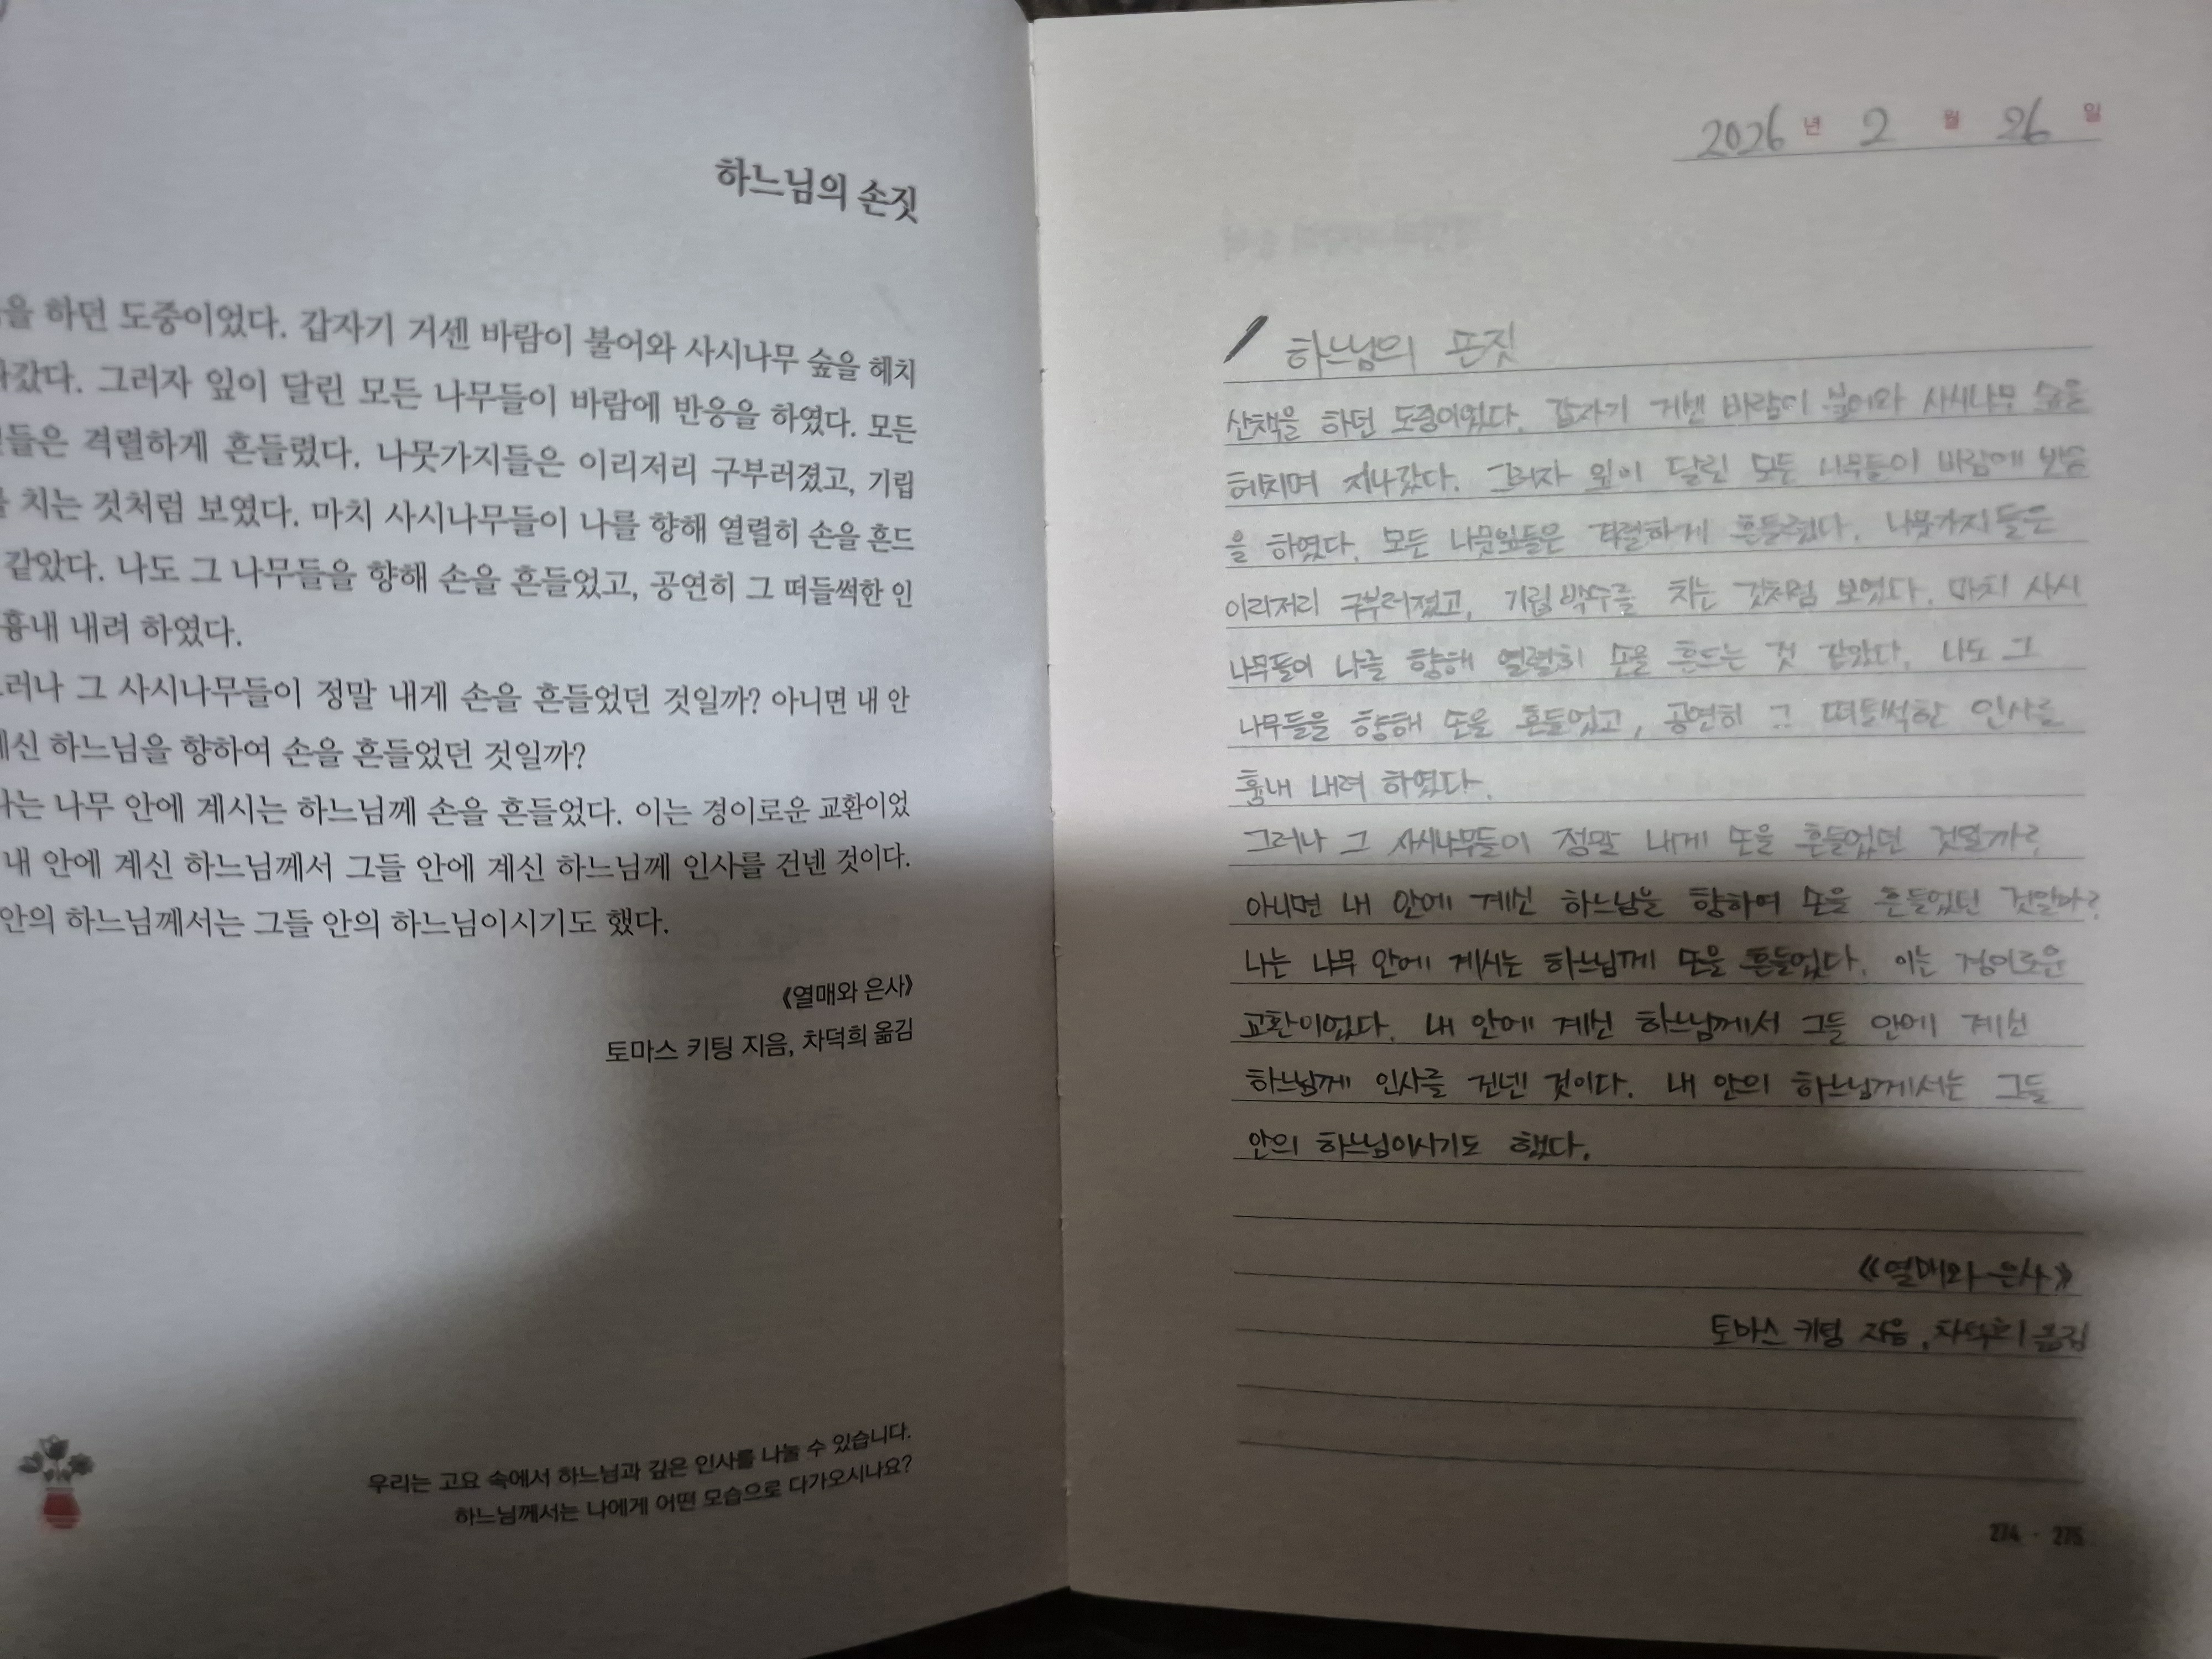 하느님의 손짓
을 하던 도중이었다. 갑자기 거센 바람이 불어와 사시나무 숲을 헤치
갔다. 그러자 잎이 달린 모든 나무들이 바람에 반응을 하였다. 모든
들은 격렬하게 흔들렸다. 나뭇가지들은 이리저리 구부러졌고, 기립
치는 것처럼 보였다. 마치 사시나무들이 나를 향해 열렬히 손을 흔드
같았다. 나도 그 나무들을 향해 손을 흔들었고, 공연히 그 떠들썩한 인
흉내 내려 하였다.
러나 그 사시나무들이 정말 내게 손을 흔들었던 것일까? 아니면 내 안
신 하느님을 향하여 손을 흔들었던 것일까?
는 나무 안에 계시는 하느님께 손을 흔들었다. 이는 경이로운 교환이었
내 안에 계신 하느님께서 그들 안에 계신 하느님께 인사를 건넨 것이다.
안의 하느님께서는 그들 안의 하느님이시기도 했다.
《열매와 은사》
토마스 키팅 지음, 차덕희 옮김
우리는 고요 속에서 하느님과 깊은 인사를 나눌 수 있습니다.
하느님께서는 나에게 어떤 모습으로 다가오시나요?
2026년 2월 26일
하느님의 손짓
산책을 하던 도중이었다. 갑자기 거센 바람이 불어와 사시나무 숲을
헤치며 지나갔다. 그러자 잎이 달린 모든 나무들이 바람에 반응
을 하였다. 모든 나뭇잎들은 격렬하게 흔들렸다. 나뭇가지들은
이리저리 구부러졌고, 기립 박수를 치는 것처럼 보였다. 마치 사시
나무들이 나를 향해 열렬히 손을 흔드는 것 같았다. 나도 그
나무들을 향해 손을 흔들었고, 공연히 그 떠들썩한 인사를
흉내 내려 하였다.
그러나 그 사시나무들이 정말 내게 손을 흔들었던 것일까?
아니면 내 안에 계신 하느님을 향하여 손을 흔들었던 것일까?
나는 나무 안에 계시는 하느님께 손을 흔들었다. 이는 경이로운
교환이었다. 내 안에 계신 하느님께서 그들 안에 계신
하느님께 인사를 건넨 것이다. 내 안의 하느님께서는 그들
안의 하느님이시기도 했다.
《열매와 은사》
토마스 키팅 지음, 차덕희 옮김
274 · 275